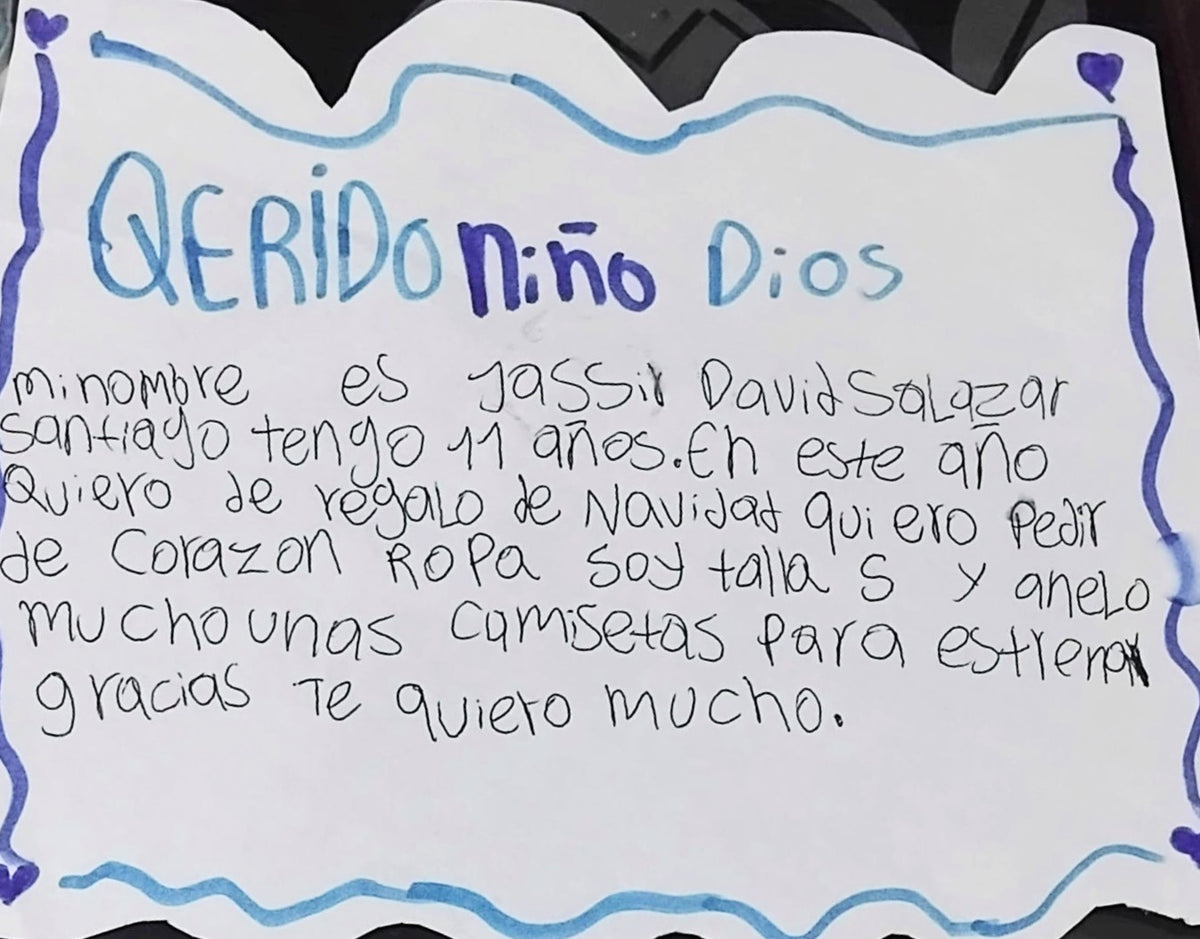 QERIDO niño Dios
mi nombre es Jassir David Salazar
santiago tengo 11 años. En este año
Quiero de regalo de Navidad quiero Pedir
de Corazon ROPa Soy talla S y aneLo
mucho unas camisetas para estrenar
gracias Te quiero mucho.